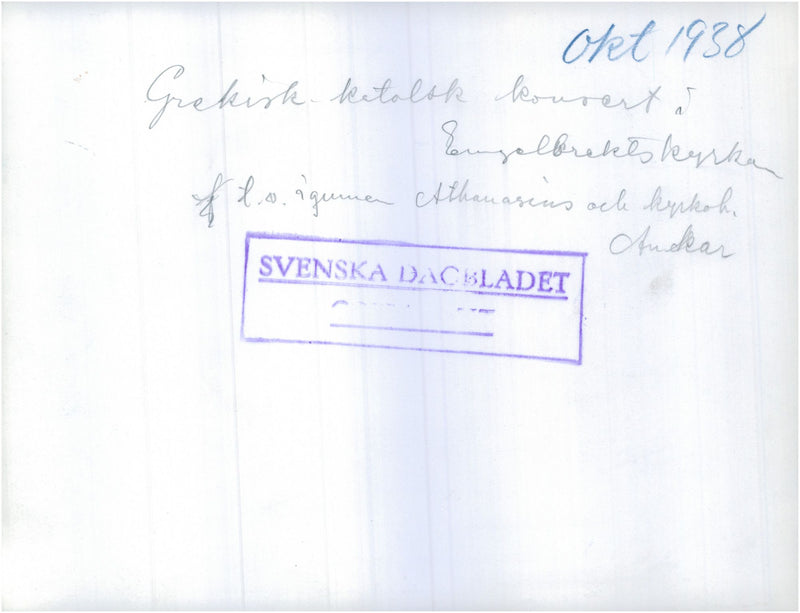 okt 1938
Grekisk-katolsk konsert i
Engelbrektskyrkan
t.v. igumen Athanasius och kyrkoh.
Ankar
SVENSKA DAGBLADET